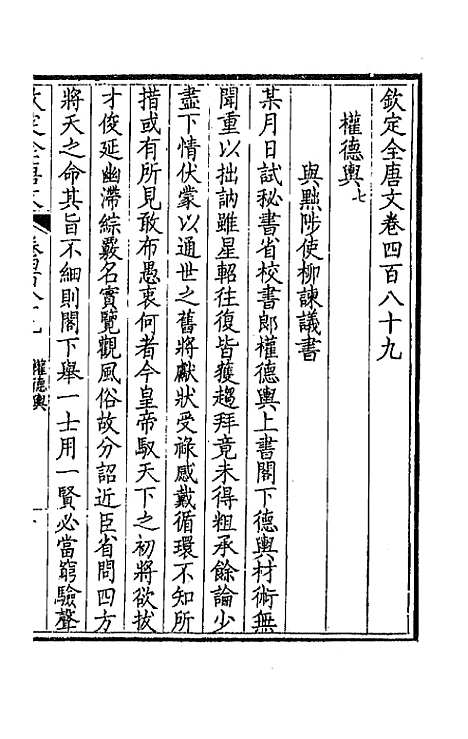 欽定全唐文卷四百八十九
權德輿七
與黜陟使柳諫議書
某月日試秘書省校書郎權德輿上書閣下德輿材術無
聞重以拙訥雖星軺往復皆獲趨拜竟未得粗承餘論少
盡下情伏蒙以通世之舊將獻狀受祿感戴循環不知所
措或有所見敢布愚衷何者今皇帝馭天下之初將欲拔
才俊延幽滯綜覈名實覽觀風俗故分詔近臣省問四方
將天之命其旨不細則閣下舉一士用一賢必當窮驗聲
欽定全唐文
卷四百八十九
權德輿
一